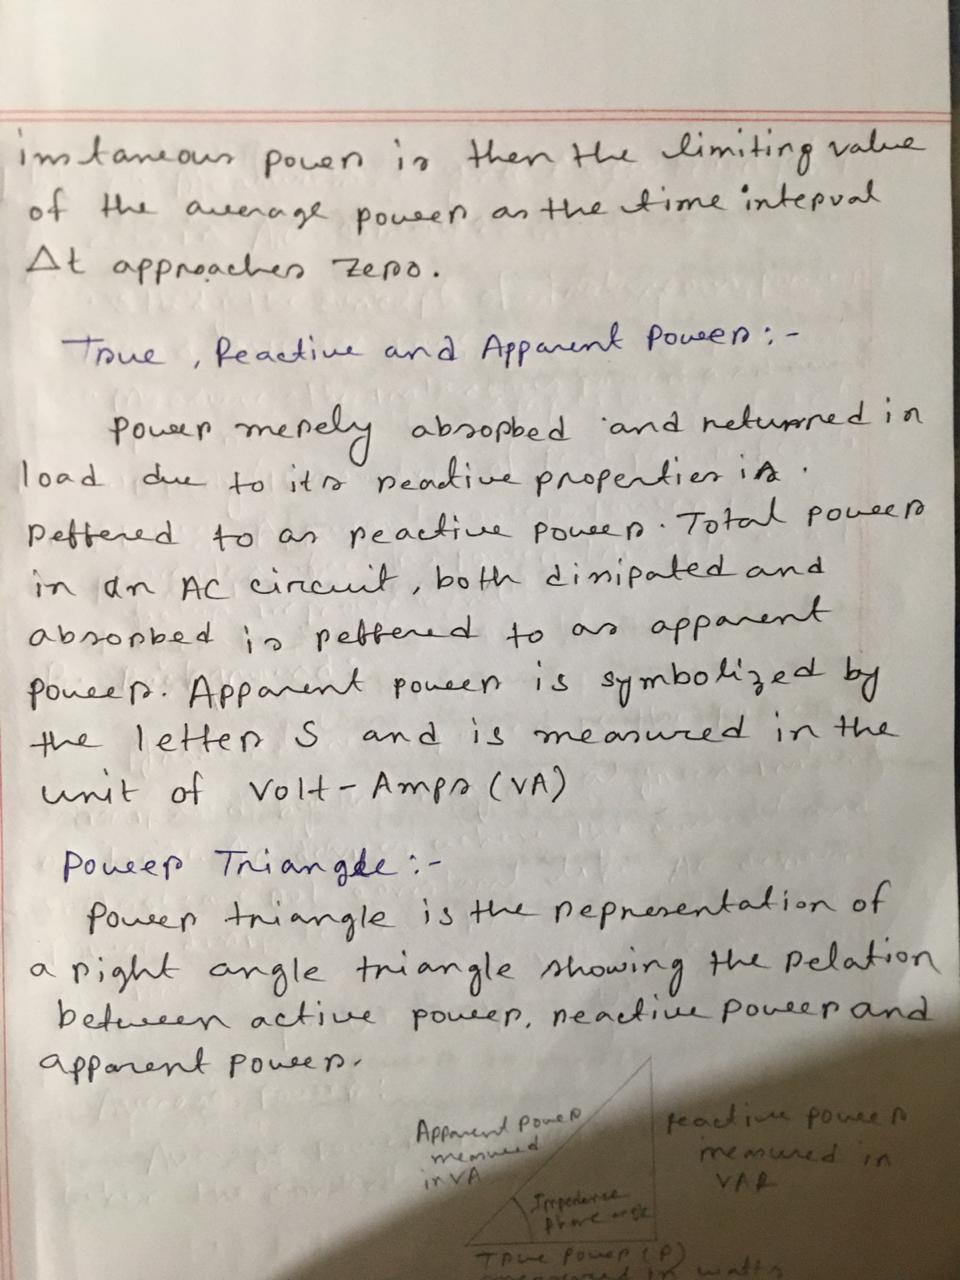 instaneous power is then the limiting value
of the average power as the time interval
Δt approaches zero.
True, Reactive and Apparent Power:-
Power merely absorbed and returned in
load due to its reactive properties is
reffered to as reactive power. Total power
in an AC circuit, both dissipated and
absorbed is reffered to as apparent
power. Apparent power is symbolized by
the letter S and is measured in the
unit of Volt-Amps (VA)
Power Triangle:-
Power triangle is the representation of
a right angle triangle showing the relation
between active power, reactive power and
apparent power.
Apparent power
measured
in VA
reactive power
measured in
VAR
Impedence
phase angle
True power (P)
measured in watts